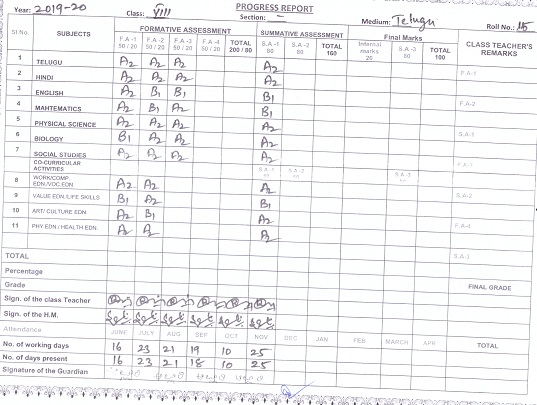 PROGRESS REPORT
Year: 2019-20 Class: VIII Section: - Medium: Telugu Roll No.: 15
Sl No. SUBJECTS FORMATIVE ASSESSMENT SUMMATIVE ASSESSMENT Final Marks CLASS TEACHER'S REMARKS
F.A -1 50 / 20 F.A -2 50 / 20 F.A -3 50 / 20 F.A -4 50 / 20 TOTAL 200 / 80 S.A -1 80 S.A -2 80 TOTAL 160 Internal marks 20 S.A -3 80 TOTAL 100
1 TELUGU A2 A2 A2 A2 F.A-1
2 HINDI A2 A2 A2 A2
3 ENGLISH A2 B1 B1 B1 F.A-2
4 MAHTEMATICS A2 B1 A2 A2
5 PHYSICAL SCIENCE A2 A2 A2 A2 S.A-1
6 BIOLOGY B1 A2 A2 A2
7 SOCIAL STUDIES A2 A2 A2 A2
CO-CURRICULAR ACTIVITIES S.A -1 S.A -2 S.A -3
8 WORK/COMP. EDN./VOC.EDN A2 A2 A2 S.A-2
9 VALUE EDN./LIFE SKILLS B1 A2 B1
10 ART/ CULTURE EDN. A2 B1 A2 F.A-4
11 PHY.EDN / HEALTH EDN. A2 A2 A2
TOTAL S.A-3
Percentage
Grade FINAL GRADE
Sign. of the class Teacher
Sign. of the H.M.
Attendance JUNE JULY AUG SEP OCT NOV DEC JAN FEB MARCH APR TOTAL
No. of working days 16 23 21 19 10 25
No. of days present 16 23 21 18 10 25
Signature of the Guardian